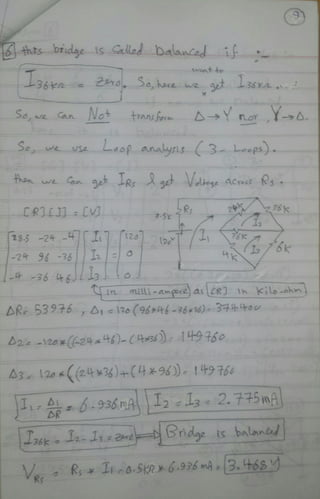 9
6) this bridge is called balanced if :-
I36KΩ = zero. So, here we want to get I36KΩ...
So, we can Not transform Δ→Y nor Y→Δ.
So, we use Loop analysis (3-Loops).
then we can get IRs & get Voltage across Rs.
[R][I] = [V]
Rs
0.5K
120V
I1
24K
36K
I2
36K
I3
4K
6K
28.5 -24 -4 I1 120
-24 96 -36 I2 = 0
-4 -36 46 I3 0
in milli-ampere as [R] in Kilo-ohm
ΔR = 53976, Δ1 = 120(96*46-36*36) = 374400
Δ2 = -120*((-24*46)-(4*36)) = 149760
Δ3 = 120*((24*36)+(4*96)) = 149760
I1 = Δ1/ΔR = 6.936mA I2 = I3 = 2.775mA
I36K = I2 - I3 = zero ⟹ Bridge is balanced
VRs = Rs * I1 = 0.5KΩ * 6.936mA = 3.468V